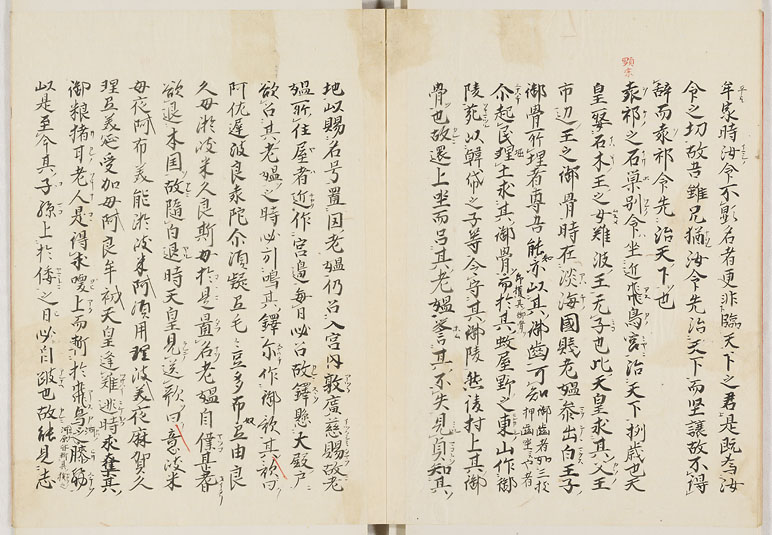 顕宗
牟家時汝命不顕名者更非臨天下之君是既為汝
命之功故吾雖兄猶汝命先治天下而堅譲故不得
辞而袁祁命先治天下也
袁祁之石巣別命坐近飛鳥宮治天下捌歳也天
皇娶石木王之女難波王无子也此天皇求其父王
市辺王之御骨時在淡海國賎老媼参出白王子
御骨所埋者専吾能亦以其御歯可知御歯者如三枝押歯坐也者
尒起民堀土求其御骨即獲其御骨而於其蚊屋野之東山作御
陵葬以韓帒之子等令守其御陵然後持上其御
骨也故還上坐而召其老媼誉其不失見貞知其
地以賜名号置目老媼仍召入宮内敦廣慈賜故老
媼所住屋者近作宮邊毎日必召故鐸懸大殿戸
欲召其老媼之時必引鳴其鐸尒作御歌其歌曰
阿佐遅波良袁陀尒須疑弖毛〻豆多布奴弖由良
久母淤岐米久良斯母於是置目老媼白僕甚耆
欲退本国故随白退時天皇見送歌曰意岐米
母夜阿布美能淤岐米阿須用理波美夜麻賀久
理弖美延受加母阿良牟初天皇逢難逃時求奪其
御粮猪甘老人是得求喚上而斬於飛鳥河之河原皆斬其族之膝筋
以是至今其子孫上於倭之日必自跛也故能見志